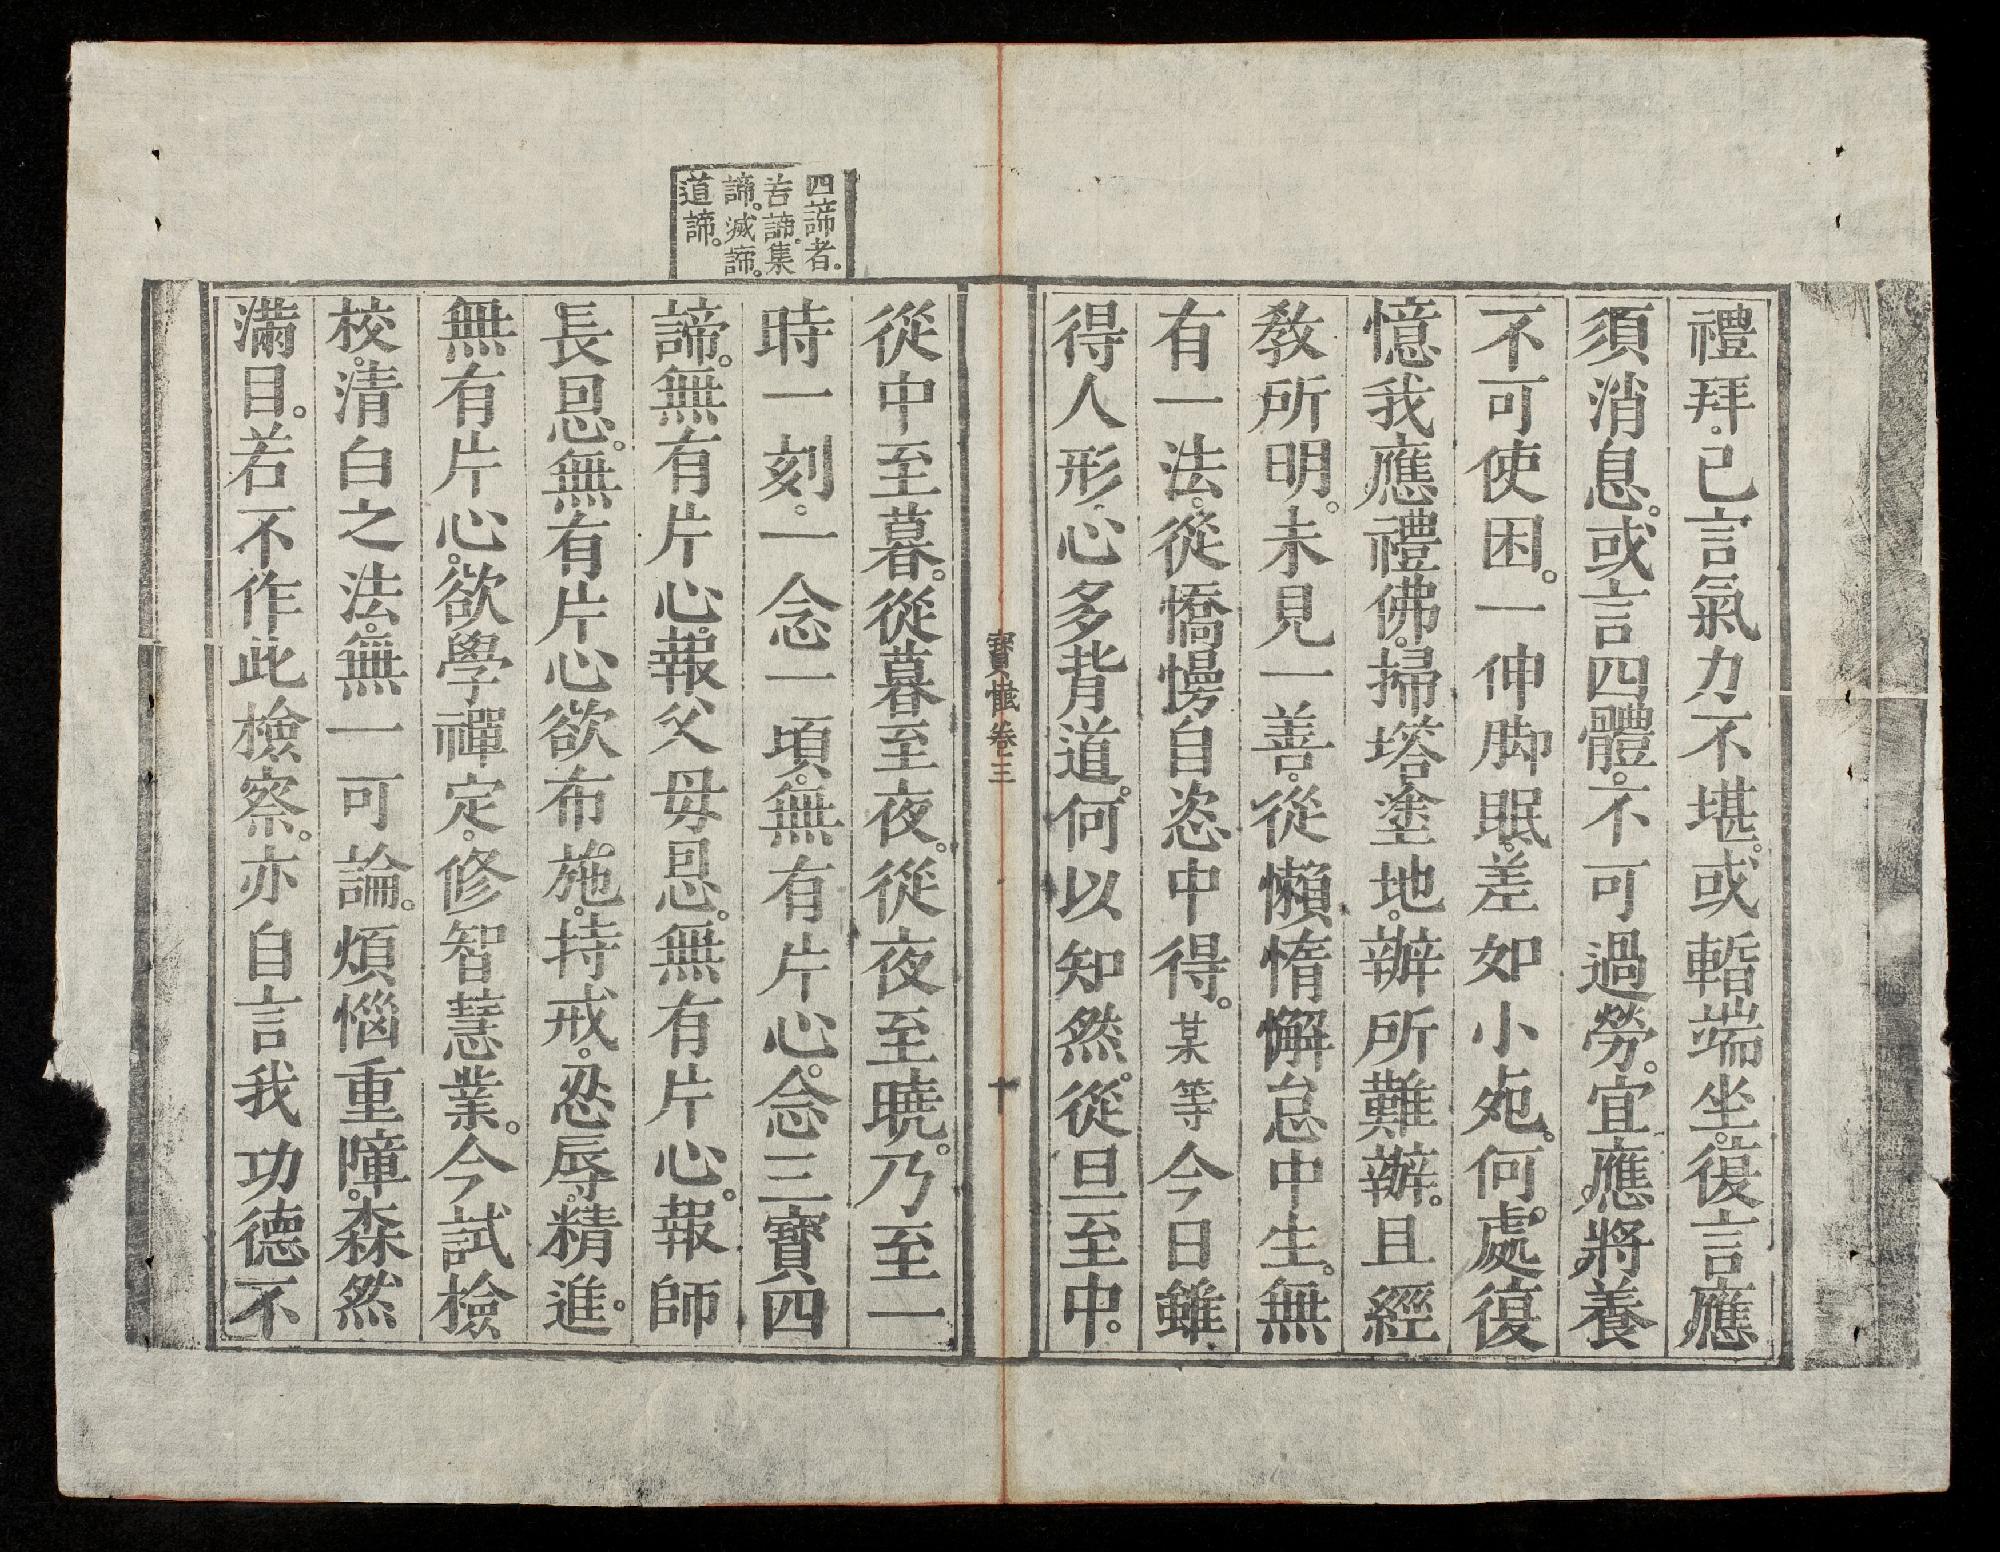 禮拜.已言氣力不堪。或暫端坐。復言應
須消息。或言四體。不可過勞。宜應將養
不可使困。一伸脚眠。差如小死。何處復
憶我應禮佛。掃塔塗地。辦所難辦。且經
敎所明。未見一善。從懶惰懈怠中生。無
有一法。從憍慢自恣中得。某等今日雖
得人形。心多背道。何以知然。從旦至中。
從中至暮。從暮至夜。從夜至曉。乃至一
時一刻。一念一頃。無有片心。念三寶四
諦。無有片心。報父母恩。無有片心。報師
長恩。無有片心欲布施。持戒。忍辱。精進。
無有片心。欲學禪定。修智慧業。今試檢
校。清白之法。無一可論。煩惱重障。森然
滿目。若不作此檢察。亦自言我功德不
四諦者。
苦諦。集
諦。滅諦。
道諦。
寶懺卷三
十